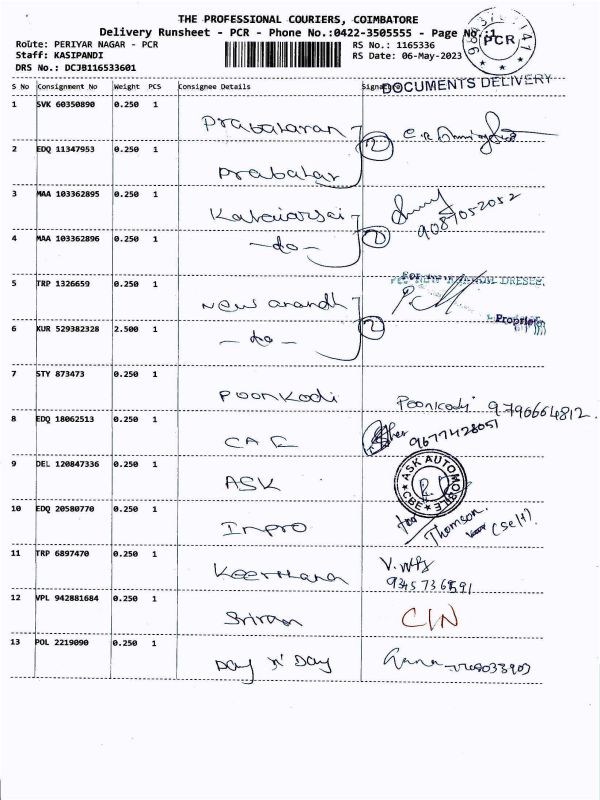 THE PROFESSIONAL COURIERS, COIMBATORE
Delivery Runsheet - PCR - Phone No.:0422-3505555 - Page No.:1
Route: PERIYAR NAGAR - PCR
RS No.: 1165336
Staff: KASIPANDI
RS Date: 06-May-2023
DRS No.: DCJB116533601
PCR
DOCUMENTS DELIVERY
S No Consignment No Weight PCS Consignee Details
1 SVK 60350890 0.250 1
Prabakaran 2
2 EDQ 11347953 0.250 1
Prabakar
3 MAA 103362895 0.250 1
Kalaiarsai 2 9087052052
4 MAA 103362896 0.250 1
-do-
5 TRP 1326659 0.250 1
New anandh 2
Proprietor
6 KUR 529382328 2.500 1
-do-
7 STY 873473 0.250 1
Poonkodi Poonkodi 9790664812.
8 EDQ 18062513 0.250 1
9677428051
9 DEL 120847336 0.250 1
ASK
ASK AUTOMOBILE CBE
10 EDQ 20580770 0.250 1
Inpro Thomson. (self).
11 TRP 6897470 0.250 1
Keerthana
12 VPL 942881684 0.250 1
Sriram C/N
13 POL 2219090 0.250 1
Day N' Day